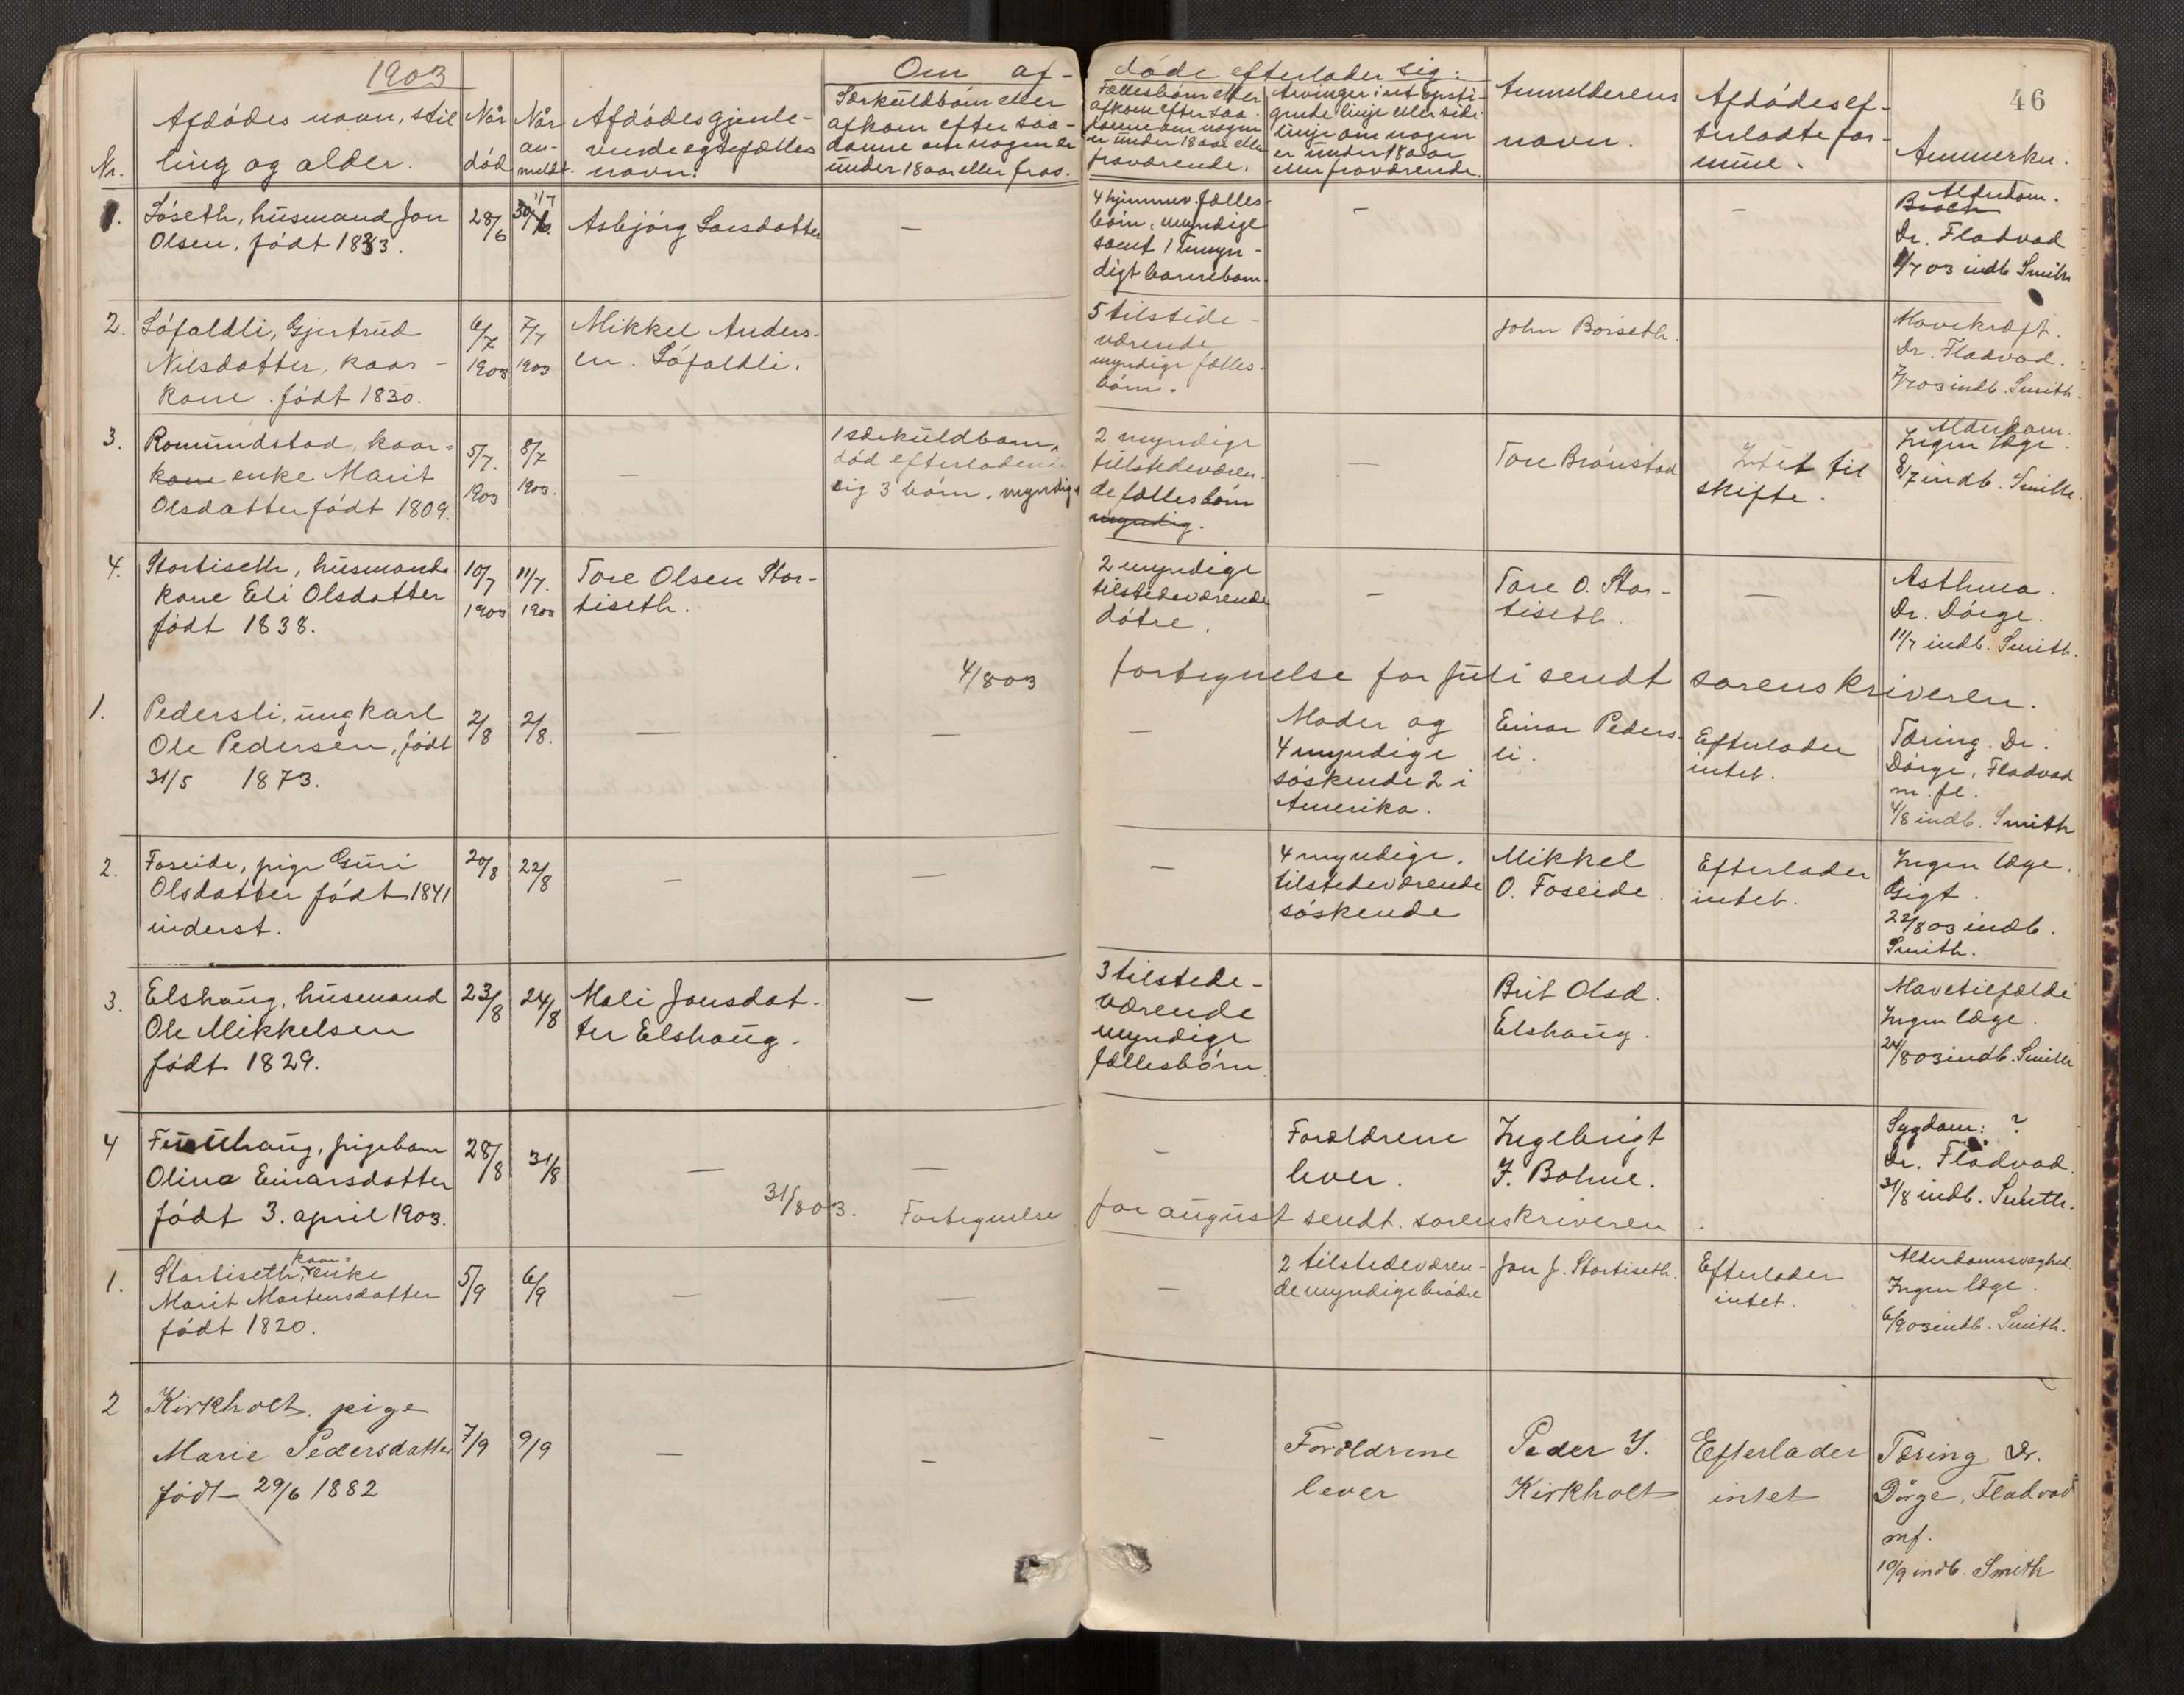 1903
Om af-
døde efterlader sig:
46
Nr.
Afdødes navn, stil
ling og alder.
Når
død
Når
an-
meldt.
Afdødes gjenle-
vende egtefælles
navn.
Særkuldbørn eller
afkom efter saa-
danne om nogen er
under 18 aar eller frav.
Fællesbørn eller
afkom efter saa-
danne om nogen
er under 18 aar eller
fraværende.
Arvinger i ret opsti-
gende linje eller side-
linje om nogen
er under 18 aar
eller fraværende.
Anmelderens
navn.
Afdødes ef-
terladte for-
mue.
Anmerkn.
1.
Løseth, husmand Jon
Olsen, født 1833.
28/6
30/6.
1/7
Asbjørg Larsdatter
—
4 hjemmev. fælles-
børn, myndige
samt 1 umyn-
digt barnebarn.
—
—
Alderdom.
Dr. Fladvad
1/7 03 indb Smith
2.
Løfaldli, Gjertrud
Nilsdatter, kaar-
kone. født 1830.
6/7
1903
7/7
1903
Mikkel Anders-
en. Løfaldli.
5 tilstede-
værende
myndige fælles-
børn.
John Børseth.
Mavekræft.
Dr. Fladvad.
7/7 03 indb. Smith.
3.
Romundstad, kaar-
kone enke Marit
Olsdatter født 1809.
5/7.
1903
8/7
1903.
—
1 særkuldbarn,
død efterladende
sig 3 børn. myndige
2 myndige
tilstedeværen-
de fællesbørn
myndig.
—
Tore Brønstad
Intet til
skifte.
Alderdom.
Ingen læge.
8/7 indb. Smith.
4.
Stortiseth, husmands
kone Eli Olsdatter
født 1838.
10/7
1903
11/7.
1903
Tore Olsen Stor-
tiseth.
2 myndige
tilstedeværende
døtre.
—
Tore O. Stor-
tiseth.
—
Asthma.
Dr. Dørge.
11/7 indb. Smith.
4/8 03 fortegnelse for juli sendt sorenskriveren.
1.
Pedersli, ungkarl
Ole Pedersen, født
31/5 1873.
2/8
2/8.
—
—
—
Moder og
4 myndige
søskende 2 i
Amerika.
Einar Peders-
li.
Efterlader
intet.
Tæring. Dr.
Dørge, Fladvad
m. fl.
4/8 indb. Smith
2.
Foseide, pige Guri
Olsdatter født 1841
inderst.
20/8
22/8
—
—
—
4 myndige,
tilstedeværende
søskende
Mikkel
O. Foseide.
Efterlader
intet.
Ingen læge.
Gigt.
22/8 03 indb.
Smith.
3.
Elshaug, husmand
Ole Mikkelsen
født 1829.
23/8
24/8
Mali Jonsdat-
ter Elshaug.
—
3 tilstede-
værende
myndige
fællesbørn.
Brit Olsd.
Elshaug.
Mavetilfælde
Ingen læge.
24/8 03 indb. Smith
4
Furuhaug, pigebarn
Olina Einarsdatter
født 3. april 1903.
28/8
31/8
—
—
—
Forældrene
lever.
Ingebrigt
J. Bolme.
Sygdom: ?
Dr. Fladvad.
31/8 indb. Smith.
31/8 03. Fortegnelse for august sendt. sorenskriveren.
1.
kaar-
Stortiseth, enke
Marit Mortensdatter
født 1820.
5/9
6/9
—
—
—
2 tilstedeværen-
de myndige brødre
Jon J. Stortiseth.
Efterlader
intet.
Alderdomssvaghed.
Ingen læge.
6/9 03 indb. Smith.
2
Kirkholt, pige
Marie Pedersdatter
født 29/6 1882
7/9
9/9
—
—
—
Forældrene
lever
Peder I.
Kirkholt
Efterlader
intet
Tæring Dr.
Dørge, Fladvad
mf.
10/9 indb. Smith